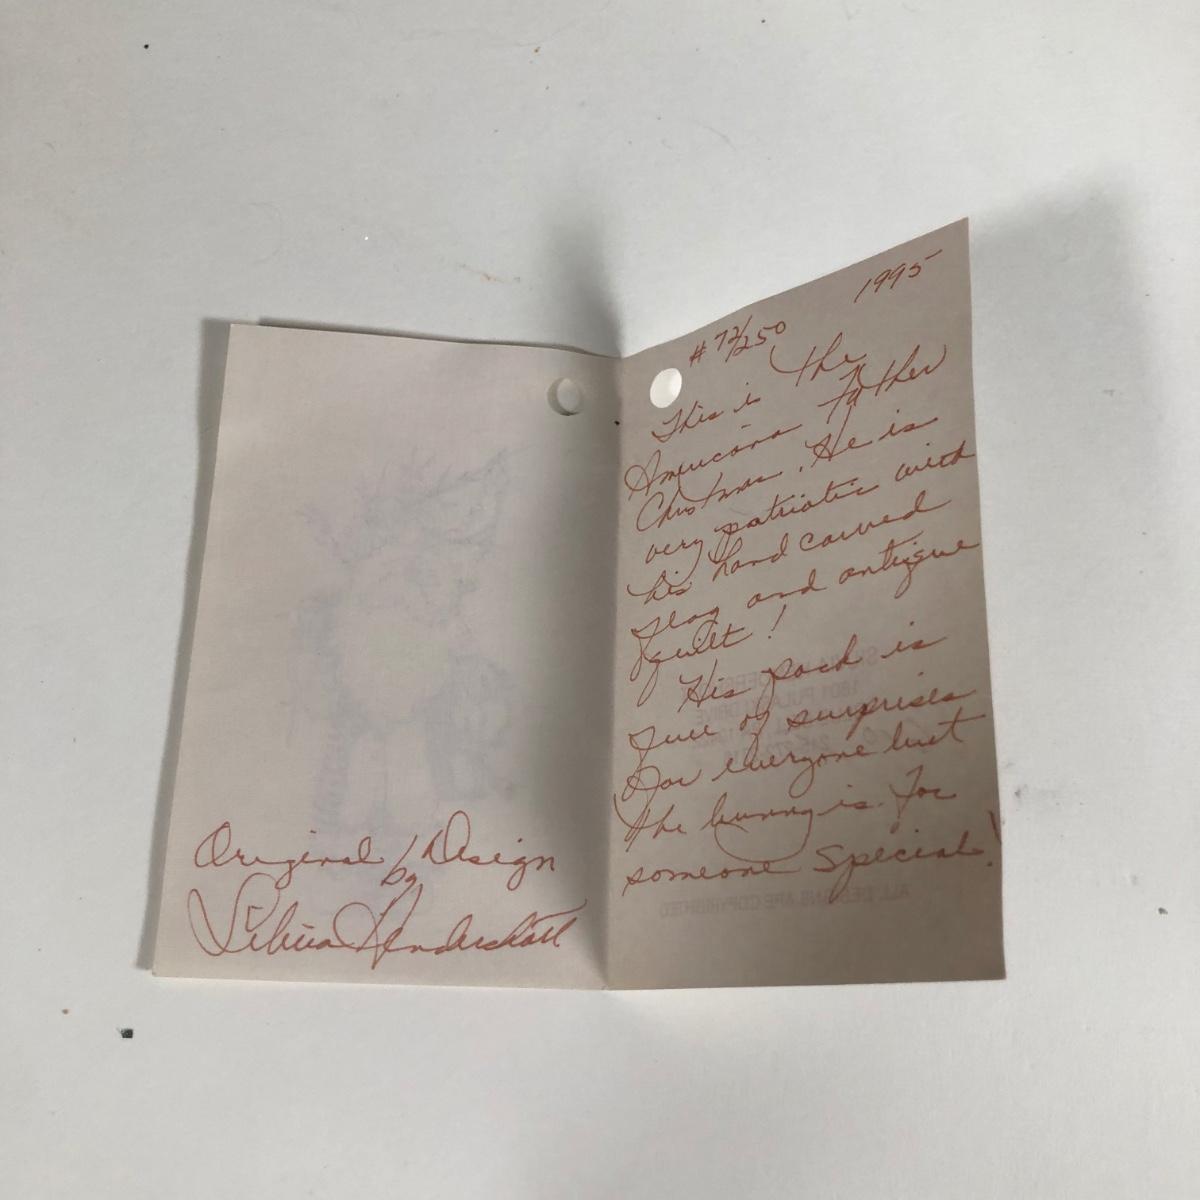 Original Design
by
#72/250
1995
This is the
Americana Father
Christmas. He is
very patriotic with
his hand carved
flag and antique
quilt!
His pack is
full of surprises
for everyone but
the bunny is for
someone special!
1801 PULASKI DRIVE
ALL DESIGNS ARE COPYRIGHTED